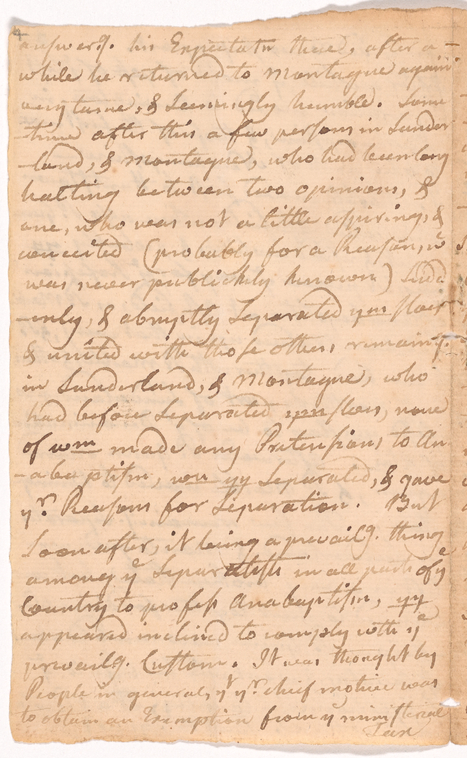 answerg. his Expectatn there, after a
while he returned to Montague again
very tame, & Seemingly humble. Some
-time after this a few persons in Sunder
-land, & Montague, who had been long
halting between two opinions, &
one, who was not a little aspiring, &
conceited (probably for a Reason, wc
was never publickly known) Sudd
-enly, & abruptly Separated ymslves
& united with those others, remaing.
in Sunderland, & Montague, who
had before Separated ymslves, none
of wm made any Pretensions to An
-abaptism, wn yy Separated, & gave
yr. Reasons for Separation. But
Soon after, it being a prevailg. thing
among ye Separatists in all parts of ye
Country to profess Anabaptism, yy
appeared inclined to comply with ye
prevailg. Custom. It was thought by
People in general, yt yr. chief motive was
to obtain an Exemption from ye ministerial
Tax